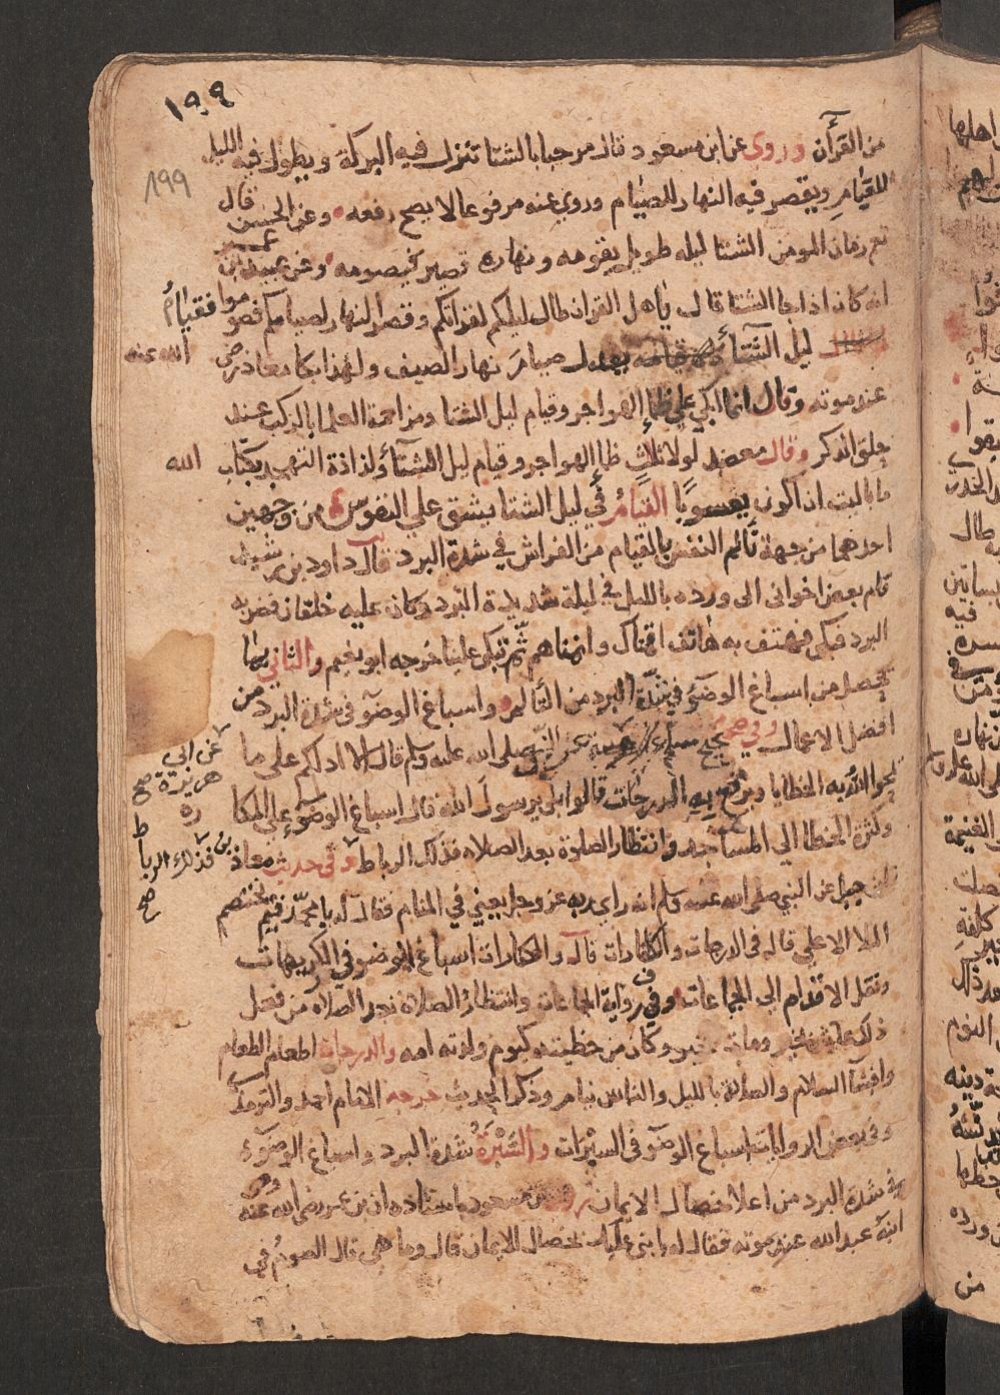 ١٩٩
199
من القرآن وروى عن ابن مسعود قال مرحبا بالشتا تنزل فيه البركة ويطول فيه الليل
للقيام ويقصر فيه النهار للصيام وروي عنه مرفوعا لا يصح رفعه وعن الحسن قال
نعم زمان المومن الشتا ليله طويل يقومه ونهاره قصير فيصومه وعن عبيد بن عمير
انه كان اذا جا الشتا قال ياهل القران طال ليلكم لقرانكم وقصر النهار لصيامكم فصوموا فقيام
ليل الشتآ يعدل صيام نهار الصيف ولهذا بكا معاذ رضي الله عنه
عند موته وقال انما ابكي على ظما الهواجر وقيام ليل الشتا ومزاحمة العلما بالركب عند
حلق الذكر وقال معضد لولا ثلاث ظما الهواجر وقيام ليل الشتآ ولذاذة التهجد بكتاب الله
ما باليت ان اكون يعسوبا القيام في ليل الشتا يشق علي النفوس من وجهين
احدهما من جهة تألم النفس بالقيام من الفراش في شدة البرد قال داود بن رشيد
قام بعض اخواني الى ورده بالليل في ليلة شديدة البرد وكان عليه خلقان فضربه
البرد فبكى فهتف به هاتف اقمناك وانمناهم ثم تبكى علينا خرجه ابو نعيم والثاني بما
يحصل من اسباغ الوضوء في شدة البرد من التألم واسباغ الوضوء في شدة البرد من
افضل الاعمال وفي صحيح مسلم عن النبي صلى الله عليه وسلم قال الا ادلكم على ما
عن ابي هريرة صح
يمحو الله به الخطايا ويرفع به الدرجات قالوا بلى يرسول الله قال اسباغ الوضوء علي المكا
ره
وكثرة الخطا الي المساجد وانتظار الصلوة بعد الصلاه فذلكم الرباط وفى حديث معاذ بن
فذلكم الرباط صح
جبل عن النبي صلى الله عليه وسلم انه راي ربه عز وجل يعني في المنام فقال له يا محمد فيم يختصم
الملا الاعلي قال في الدرجات والكفارات قال والكفارات اسباغ الوضو في الكريهات
ونقل الاقدام الى الجماعات وفي رواية الجماعات وانتظار الصلاة بعد الصلاه من فعل
ذلك عاش بخير ومات بخير وكان من خطيته كيوم ولدته امه والدرجات اطعام الطعام
وافشآ السلام والصلاة بالليل والناس نيام وذكر الحديث خرجه الامام احمد والترمذي
وفى بعض الروايات اسباغ الوضو فى السبرات والسبرة شدة البرد واسباغ الوضوء
في شدة البرد من اعلا خصال الايمان روى ابن سعد باسناده ان بن عمر رضي الله عنه
ابنه عبد الله عند موته فقال له يا بني عليك بخصال الايمان قال وما هي قال الصوم في